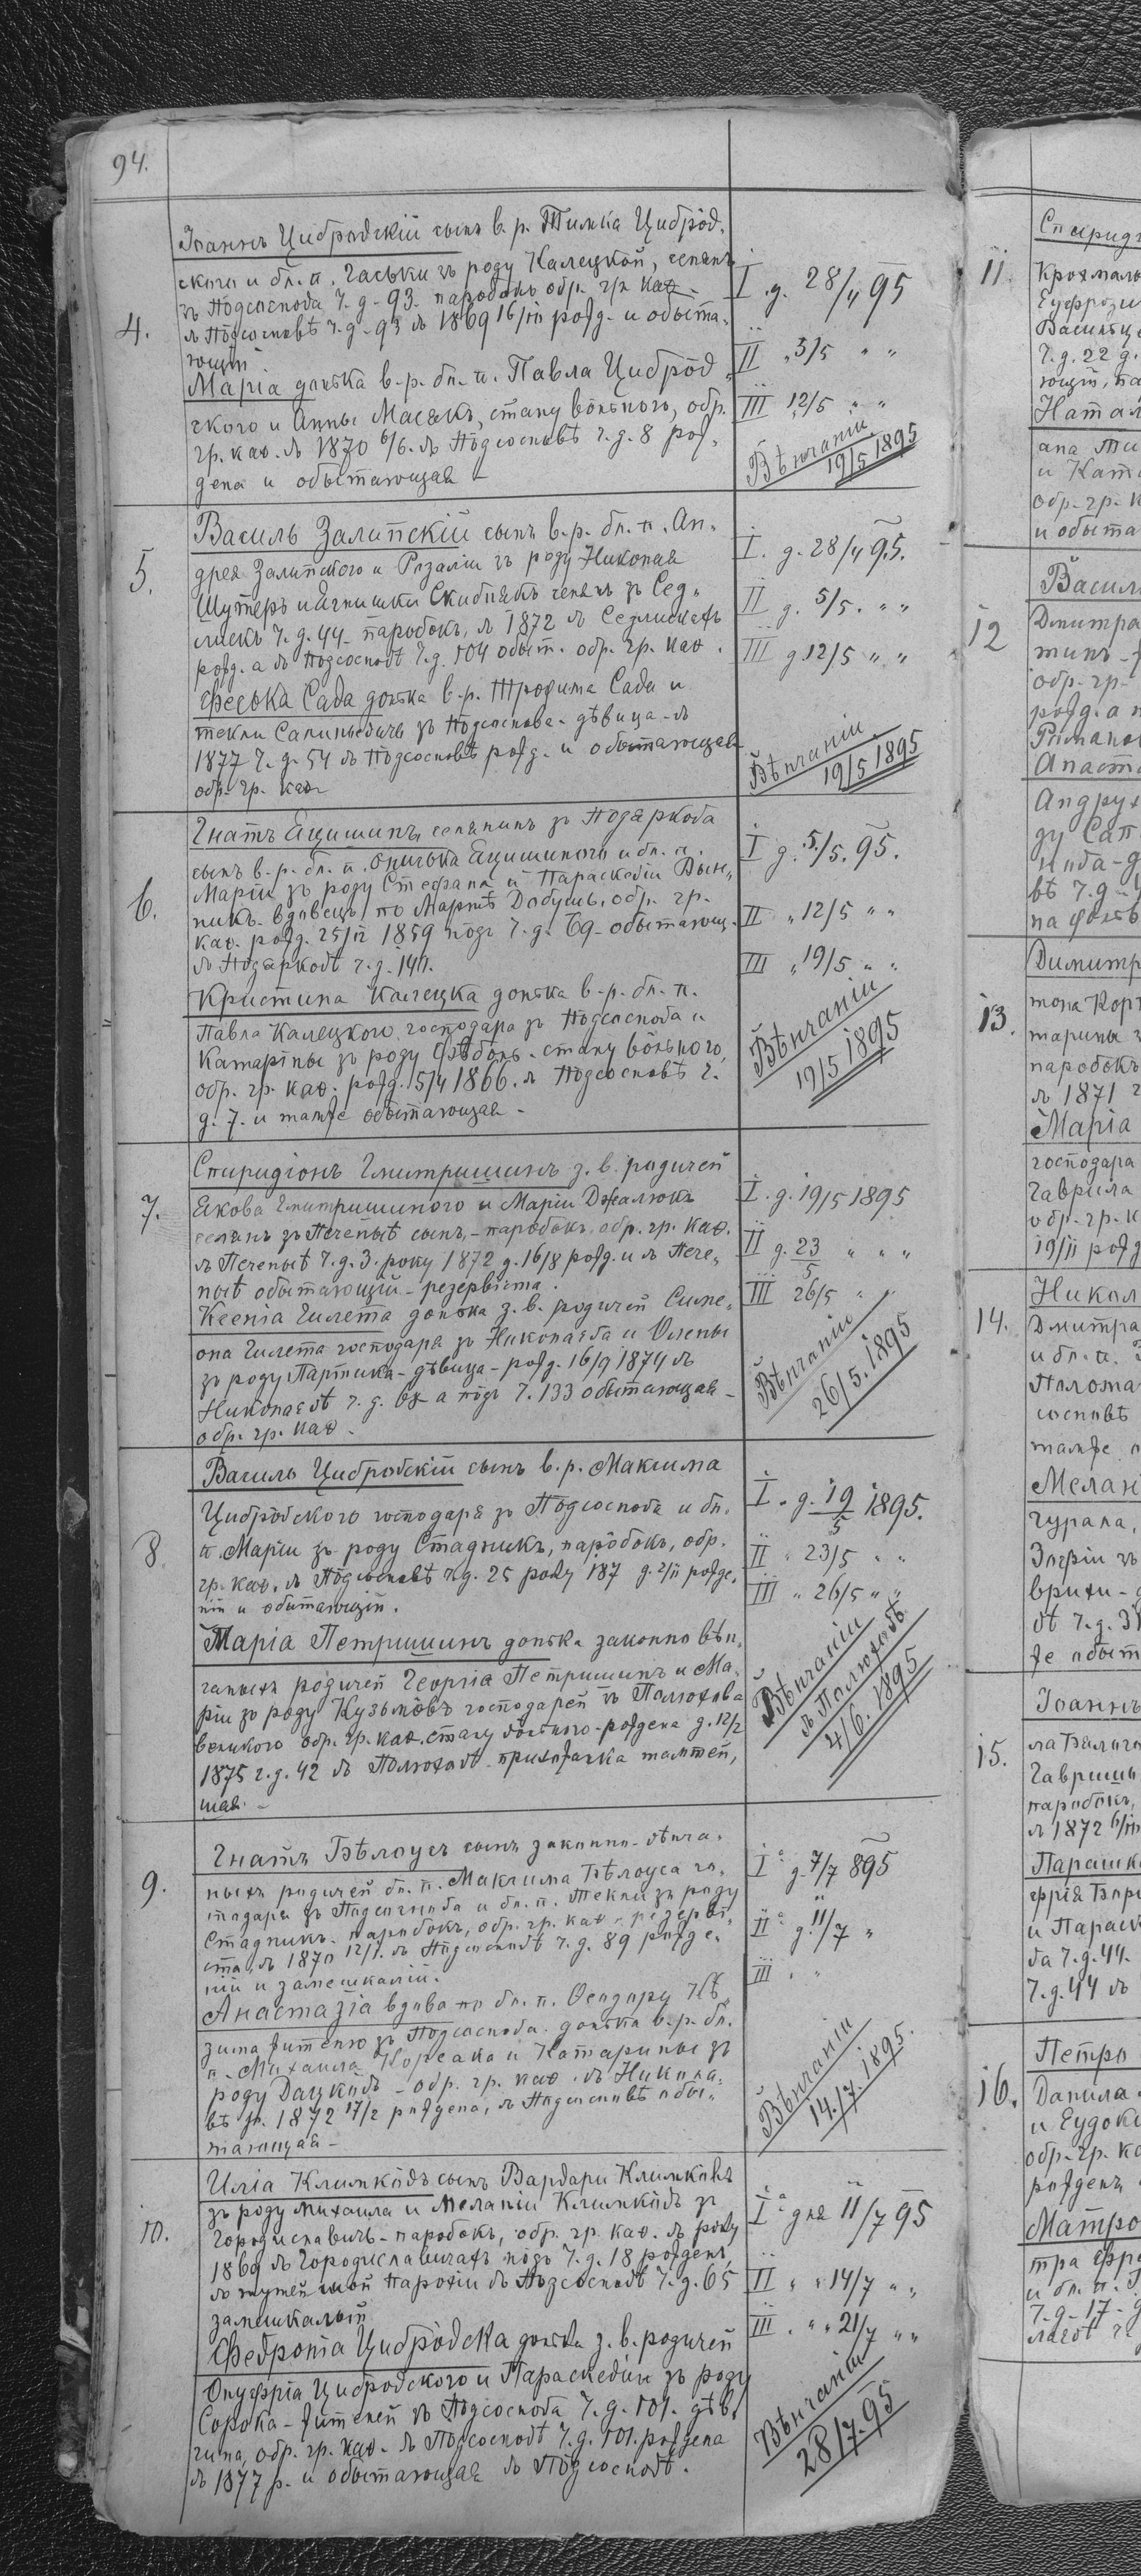 94.
4.
Іоаннъ Цибрôдскій сынъ в. р. Тимка Цибрôд-
ского и бл. п. Гаськи зъ роду Калецкой, селянъ
зъ Подсоснова ч. д. 93. паробокъ обр. гр. каѳ.
в Подсосновѣ ч. д. 93 в 1869 16/III родж. и обыта-
ющій
Марія донька в. р. бл. п. Павла Цибрôд-
ского и Анны Масякъ, стану вôльного, обр.
гр. каѳ. в 1870 6/6. в Подсосновѣ ч. д. 8 рож-
дена и обытающая
I. д. 28/4 95
II „ 5/5 „ „
III 12/5 „ „
Вѣнчаніи
19/5 1895
5.
Василь Залипскій сынъ в. р. бл. п. Ан-
дрея Залипского и Розаліи зъ роду Николая
Шутеръ и Агнишки селянъ зъ Сед-
лискъ ч. д. 44 - паробокъ, в 1872 в Седлискахъ
родж. а в Подсосновѣ ч. д. 104 обыт. обр. гр. каѳ.
Феська Сада донька в. р. Трофима Сада и
Текли зъ Подсоснова - дѣвица - в
1877 ч. д. 54 в Подсосновѣ родж. и обытающая
обр. гр. каѳ
I. д. 28/4 95.
II д. 5/5. „ „
III д. 12/5 „ „
Вѣнчаніи
19/5 1895
6.
Гнатъ Яцишинъ селянинъ зъ Подъяркова
сынъ в. р. бл. п. Ониська Яцишиного и бл. п.
Маріи зъ роду Стефана и Параскевіи
вдовецъ по Мартѣ Добушъ, обр. гр.
каѳ. родж. 25/II 1859 подъ ч. д. 69 - обытающ.
в Подъярковѣ ч. д. 141.
Кристина Калецка донька в. р. бл. п.
Павла Калецкого господара зъ Подсоснова и
Катарины зъ роду - стану вôльного,
обр. гр. каѳ. родж. 5/4 1866. в Подсосновѣ ч.
д. 7. и тамже обытающая -
I д. 5/5. 95.
II „ 12/5 „ „
III „ 19/5 „ „
Вѣнчаніи
19/5 1895
7.
Спиридіонъ Гмитришинъ з. в. родичей
Якова Гмитришиного и Маріи Джалюкъ
селянъ зъ Печеныѣ сынъ, - паробокъ, обр. гр. каѳ.
в Печеныѣ ч. д. 3. року 1872 д. 16/8 родж. и в Пече-
ныѣ обытающій - резервиста.
Ксенія Гилета донька з. в. родичей Симе-
она Гилета господара зъ Николаева и Олены
зъ роду Партика - дѣвица - родж. 16/9 1874 в
Николаевѣ ч. д. а подъ ч. 133 обытающая -
обр. гр. каѳ.
I. д. 19/5 1895
II д. 23/5 „ „ „
III 26/5 „ „
Вѣнчаніи
26/5. 1895
8.
Василь Цибрôвскій сынъ в. р. Максима
Цибрôвского господаря зъ Подсоснова и бл.
п. Маріи зъ роду Стадникъ, парôбокъ, обр.
гр. каѳ. в Подсосновѣ ч. д. 25 року 187 д. 2/II родже-
ній и обитающій.
Марія Петришинъ донька законно вѣн-
чаныхъ родичей Георгія Петришинъ и Ма-
ріи зъ роду Кузьмôвъ господарей зъ Полюхова
великого обр. гр. каѳ. стану вôльного - рождена д. 12/2
1875 ч. д. 42 в Полюховѣ прихожанка тамтей-
шая. -
I. д. 19/5 1895.
II „ 23/5 „ „
III „ 26/5 „ „
Вѣнчаніи
в Полюховѣ
4/6. 1895
9.
Гнатъ Бѣлоусъ сынъ законно-вѣнча-
ныхъ родичей бл. п. Максима Бѣлоуса го-
сподаря зъ Подсоснова и бл. п. Текли зъ роду
Стадникъ. паробокъ, обр. гр. каѳ. резерви-
ста, в 1870 12/1. в Подсосновѣ ч. д. 89 родже-
ній и замешкалій.
Анастазія вдова по бл. п. Ѳеодору
жителю зъ Подсоснова. донька в. р. бл.
п. Михаила Корсака и Катарины зъ
роду Дацкôвъ - обр. гр. каѳ. в Никола-
вѣ р. 1872 17/2 рождена, в Подсосновѣ обы-
тающая -
Iº д. 7/7 895
IIº д. 11/7 „
III „ „
Вѣнчаніи
14./7. 1895.
10.
Илія Климкôвъ сынъ Варвары Климковъ
зъ роду Михаила и Меланіи Климкôвъ зъ
Городиславичъ - паробокъ, обр. гр. каѳ. в року
1869 в Городиславичахъ подъ ч. д. 18 рожденъ,
в тутейшой парохіи в Подсосновѣ ч. д. 65
замешкалый
Февронія Цибрôвска донька з. в. родичей
Онуфрія Цибрôвского и Параскевіи зъ роду
Сорока - жителей зъ Подсоснова ч. д. 101. дѣв-
чина, обр. гр. каѳ. в Подсосновѣ ч. д. 101. рождена
в 1877 р. и обытающая в Подсосновѣ.
Iª дня 11/7 95
II „ „ 14/7 „ „
III. „ „ 21/7 „ „
Вѣнчаніи
28/7. 95
11.
Спирид
Крохмаль
Еуфрози
ч. д. 22 д.
ющій, па
Натал
и Кат
обр. гр. к
и обыта
12
Васил
Дмитра
обр. гр.
родж. а
Романо
Анаст
Андрух
зу Сап
13.
Димитр
тона Кор
тарины з
паробокъ
в 1871
Марія
господара
Гаврила
обр. гр. к
19/II родж
14.
Никол
Дмитра
и бл. п.
сосновѣ
тамже
Мелан
ч. д. 31
же обыт
15.
Іоаннъ
Гаври
паробокъ
в 1872 6/III
Парашк
и Параск
ва ч. д. 44.
ч. д. 44 в
16.
Петро
Данила
и Еудок
обр. гр. ка
рожденъ
Матро
и бл. п.
ч. д. 17